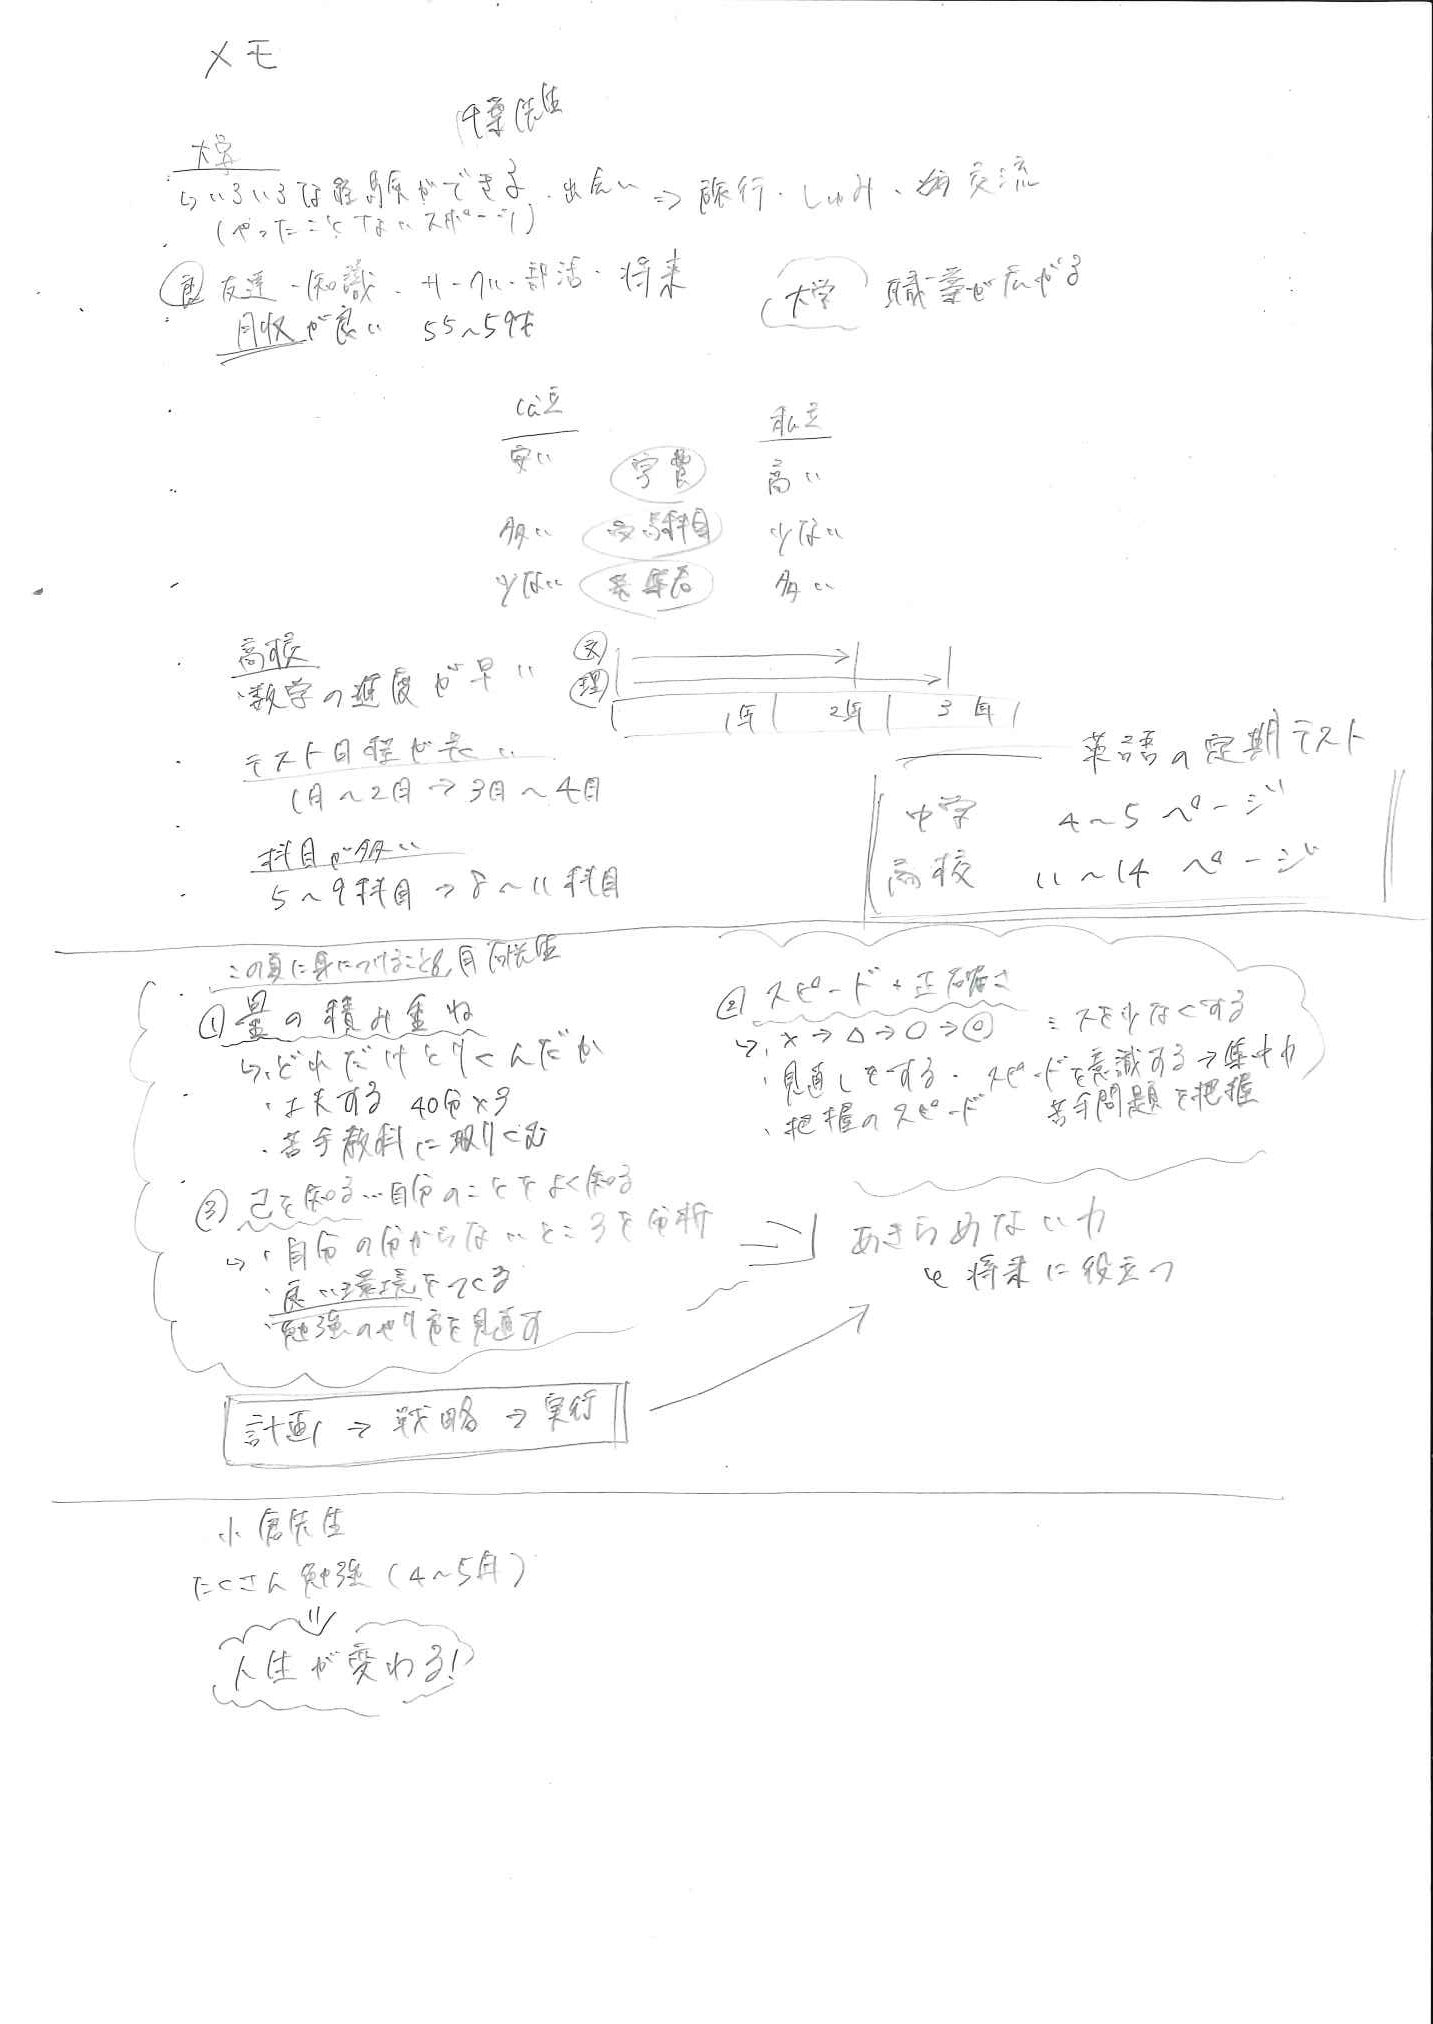 メモ
先生
大学
↳いろいろな経験ができる・出会い ⇒ 旅行・しゅみ・交流
(やったことないスポーツ)
友達・知識・サークル・部活・将来
月収が良い 55~59才
大学 職業が広がる
公立 私立
安い 学費 高い
多い 受験科目 少ない
少ない 卒業者 多い
高校
・数学の進度が早い
文
理
1年 2年 3年
テスト日程が長い
1日~2日→3日~4日
科目が多い
5~9科目→8~11科目
英語の定期テスト
中学 4~5ページ
高校 11~14ページ
この夏に身につけること 先生
①量の積み重ね
↳・どれだけとりくんだか
・工夫する 40分×3
・苦手教科に取りくむ
②スピード+正確さ
↳・×→△→○→◎ ミスを少なくする
・見直しをする・スピードを意識する→集中力
・把握のスピード 苦手問題を把握
③己を知る…自分のことをよく知る
↳・自分の分からないところを分析
・良い環境をつくる
・勉強のやり方を見直す
あきらめない力
将来に役立つ
計画→戦略→実行
小倉先生
たくさん勉強(4~5月)
⇓
人生が変わる!